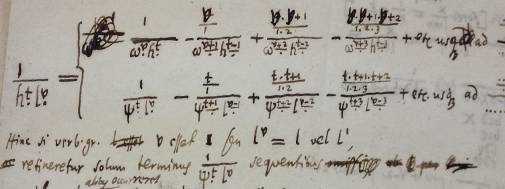 1/(h^t l^v) = { 1/(ω^v h^t) - (v/1)/(ω^(v+1) h^(t-1)) + (v.v+1/1.2)/(ω^(v+2) h^(t-2)) - (v.v+1.v+2/1.2.3)/(ω^(v+3) h^(t-3)) + etc. usq ad
1/(ψ^t l^v) - (t/1)/(ψ^(t+1) l^(v-1)) + (t.t+1/1.2)/(ψ^(t+2) l^(v-2)) - (t.t+1.t+2/1.2.3)/(ψ^(t+3) l^(v-3)) + etc. usq ad ....
Hinc si verb. gr. v esset 1 seu l^v = l vel l^1,
retineretur solum terminus 1/(ψ^t l^v) sequentibus